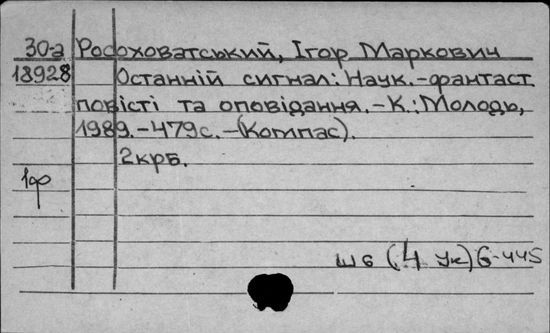 30-а Росоховатський, Ігор Маркович
18928 Останній сигнал: Наук.-фантаст.
повісті та оповідання.-К.: Молодь,
1989.-479с.-(Компас).
2крб.
1ф
Ш6 (4 Ук) 6-445